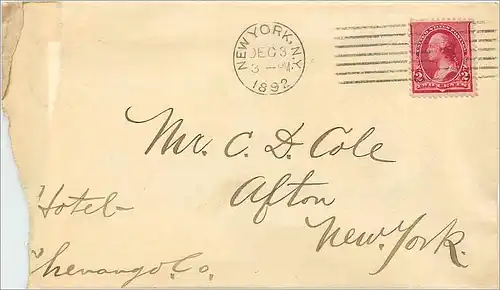 NEW YORK, N.Y.
DEC 3
3 – PM
1892
2 2
TWO CENTS
Mr. C. D. Cole
Afton
New. York.
Hotel
Chenango. Co.